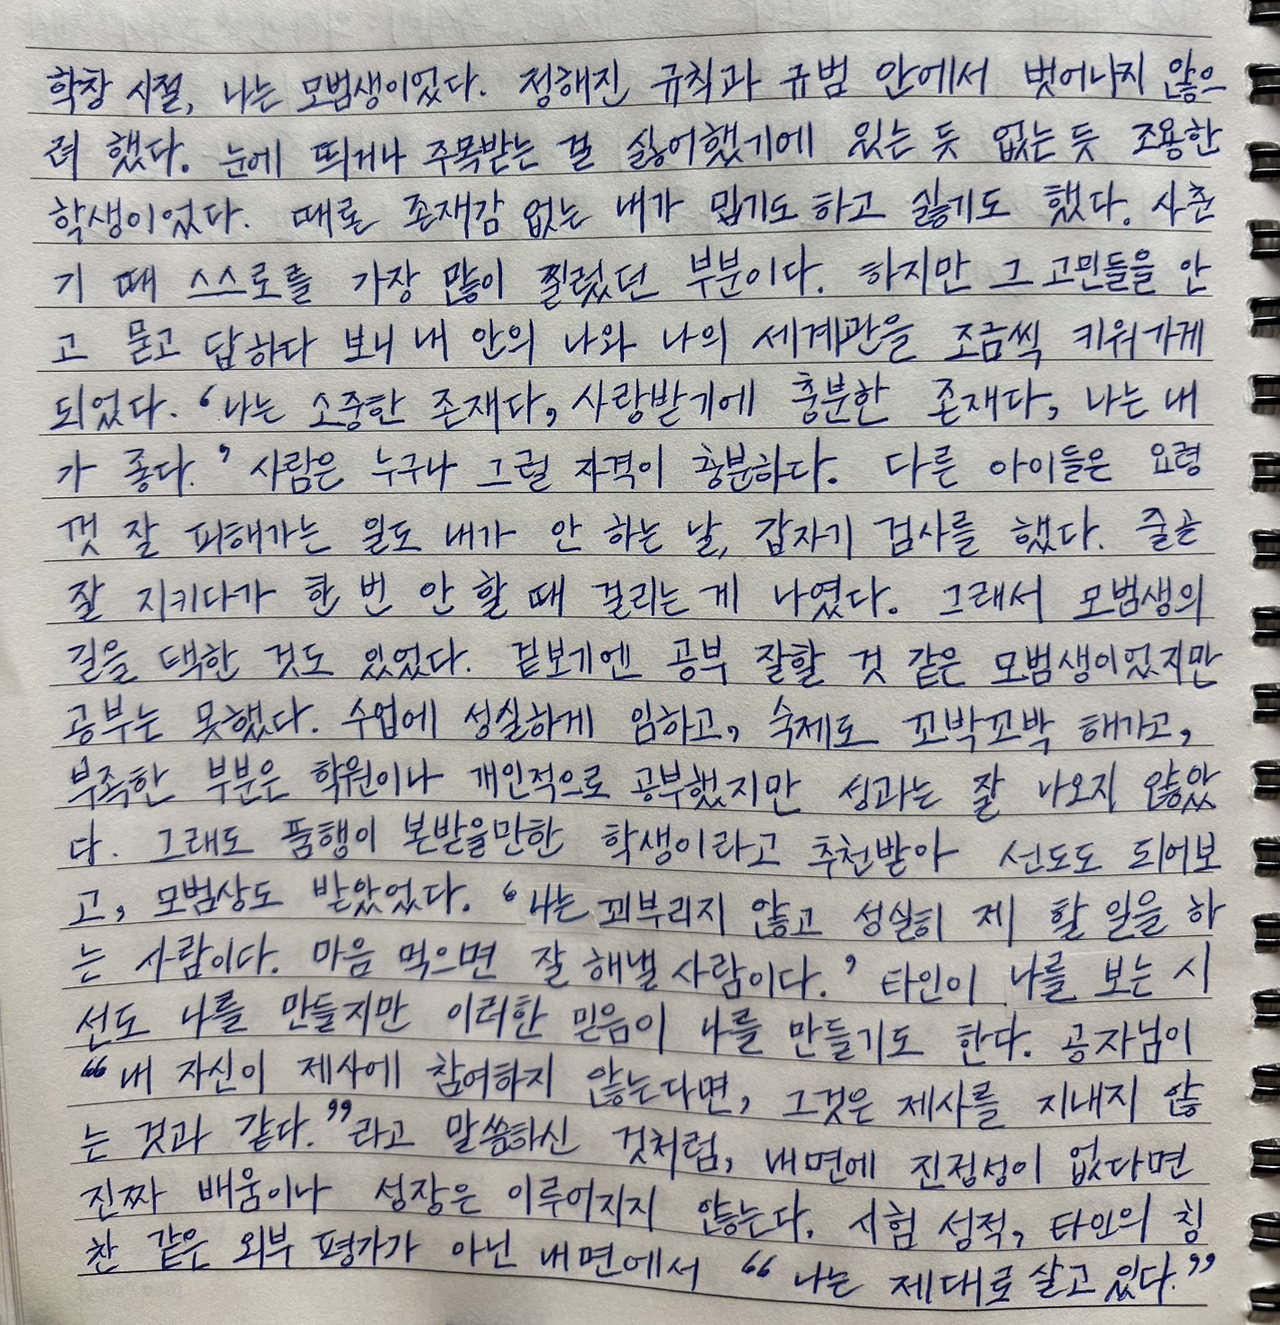 학창 시절, 나는 모범생이었다. 정해진 규칙과 규범 안에서 벗어나지 않으
려 했다. 눈에 띄거나 주목받는 걸 싫어했기에 있는 듯 없는 듯 조용한
학생이었다. 때로 존재감 없는 내가 밉기도 하고 싫기도 했다. 사춘
기 때 스스로를 가장 많이 찔렀던 부분이다. 하지만 그 고민들을 안
고 묻고 답하다 보니 내 안의 나와 나의 세계관을 조금씩 키워가게
되었다. ‘나는 소중한 존재다, 사랑받기에 충분한 존재다, 나는 내
가 좋다.’ 사람은 누구나 그럴 자격이 충분하다. 다른 아이들은 요령
껏 잘 피해가는 일도 내가 안 하는 날, 갑자기 검사를 했다. 줄곧
잘 지키다가 한 번 안 할 때 걸리는 게 나였다. 그래서 모범생의
길을 택한 것도 있었다. 겉보기엔 공부 잘할 것 같은 모범생이었지만
공부는 못했다. 수업에 성실하게 임하고, 숙제도 꼬박꼬박 해가고,
부족한 부분은 학원이나 개인적으로 공부했지만 성과는 잘 나오지 않았
다. 그래도 품행이 본받을만한 학생이라고 추천받아 선도도 되어보
고, 모범상도 받았었다. ‘나는 꾀부리지 않고 성실히 제 할 일을 하
는 사람이다. 마음 먹으면 잘 해낼 사람이다.’ 타인이 나를 보는 시
선도 나를 만들지만 이러한 믿음이 나를 만들기도 한다. 공자님이
“내 자신이 제사에 참여하지 않는다면, 그것은 제사를 지내지 않
는 것과 같다.”라고 말씀하신 것처럼, 내면에 진정성이 없다면
진짜 배움이나 성장은 이루어지지 않는다. 시험 성적, 타인의 칭
찬 같은 외부 평가가 아닌 내면에서 “나는 제대로 살고 있다.”